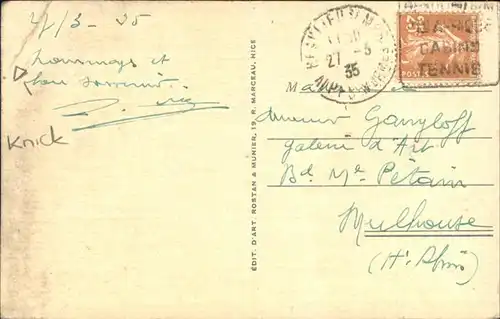 27/3 - 35
hommages et
bon souvenir.
Knick
ÉDIT. D'ART. ROSTAN & MUNIER, 19, R. MARCEAU, NICE
BEAULIEU S/ MER
27 - 3
35
ALPES MARITIMES
CABINS
TENNIS
25
POSTES
Monsieur Gangloff
galerie d'Art
Bd Mal Pétain
Mulhouse
(Ht Rhin)